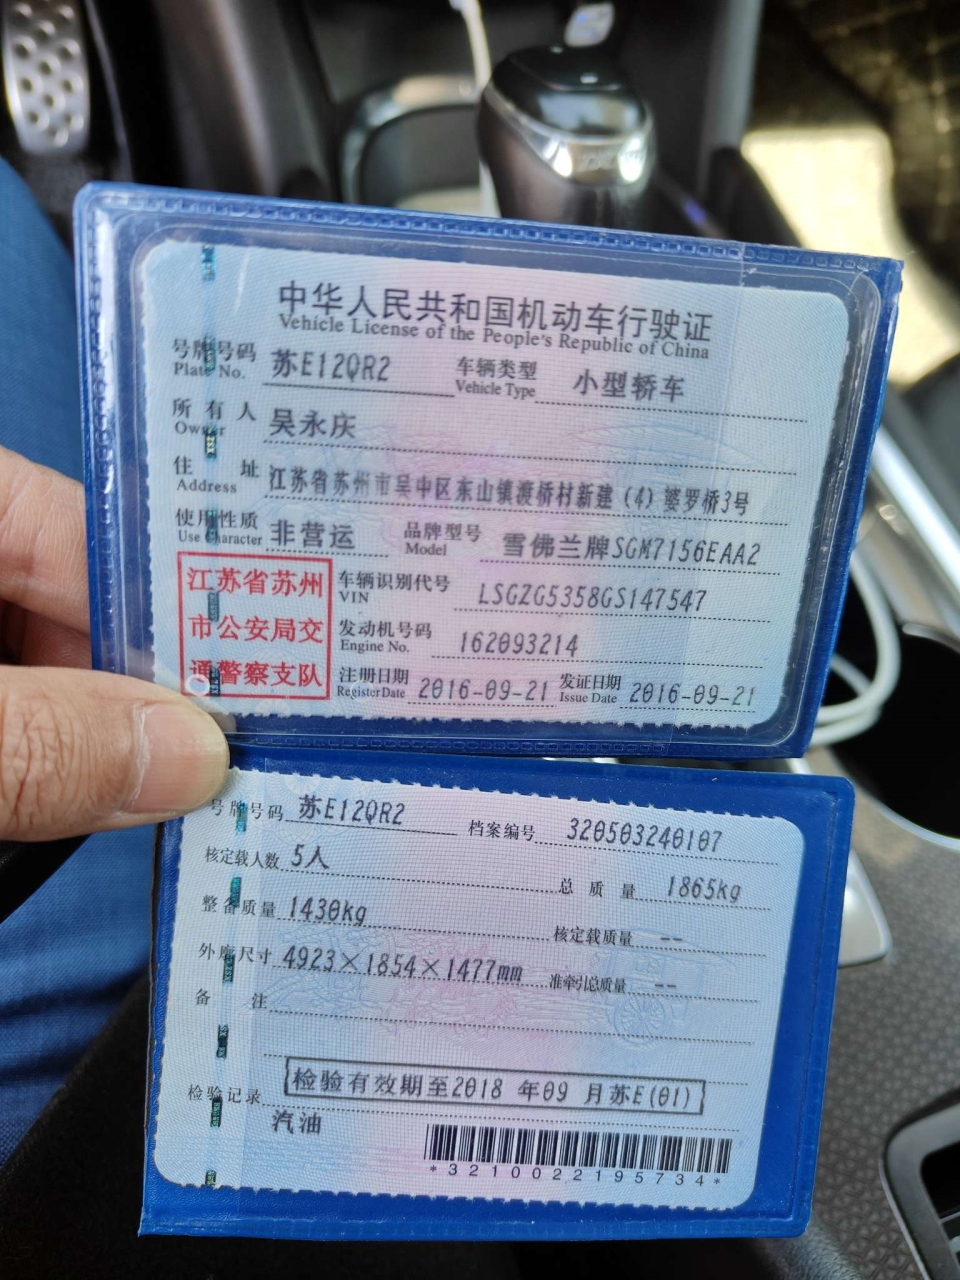 中华人民共和国机动车行驶证
Vehicle License of the People's Republic of China
号牌号码 Plate No. 苏E12QR2 车辆类型 Vehicle Type 小型轿车
所有人 Owner 吴永庆
住址 Address 江苏省苏州市吴中区东山镇渡桥村新建(4)婆罗桥3号
使用性质 Use Character 非营运 品牌型号 Model 雪佛兰牌SGM7156EAA2
江苏省苏州
市公安局交
通警察支队
车辆识别代号 VIN LSGZG5358GS147547
发动机号码 Engine No. 162093214
注册日期 Register Date 2016-09-21 发证日期 Issue Date 2016-09-21
号牌号码 苏E12QR2 档案编号 320503240107
核定载人数 5人 总质量 1865kg
整备质量 1430kg 核定载质量 --
外廓尺寸 4923×1854×1477mm 准牵引总质量 --
备注
检验记录 检验有效期至2018 年09 月苏E(01)
汽油
*3210022195734*